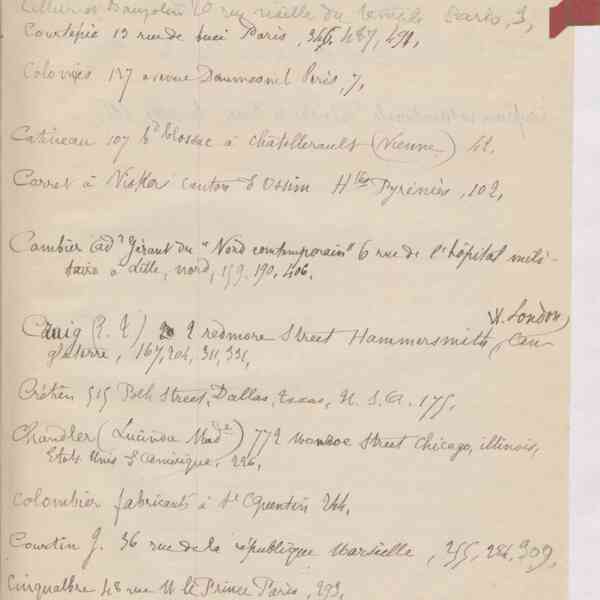 rue vieille du temple Paris, 3,
Courtépie 13 rue de buci Paris, 487, 491,
137 avenue Daumesnil Paris, 7,
Catineau 107 bd blossac à Châtellerault (Vienne) 42.
Carret à canton d'Ossun Htes Pyrénées, 102,
Cambier (adr Gérant du "Nord contemporain" 6 rue de l'hôpital mili-
taire à Lille, nord, 159. 190, 406.
W. London,
Craig (E. T.) 2 redmore Street Hammersmith,
gleterre, 167, 204, 311, 331,
Crétien 515 Polk Street, Dallas, texas, U. S. A. 175,
Chandler (Lucinda Made) 772 monroe Street Chicago, illinois,
Etats Unis d'amérique. 226,
Colombier fabricants à St Quentin 244,
Courtin J. 36 rue de la république Marseille, 255, 286, 309,
Cinqualbre 48 rue Mr le Prince Paris, 293,